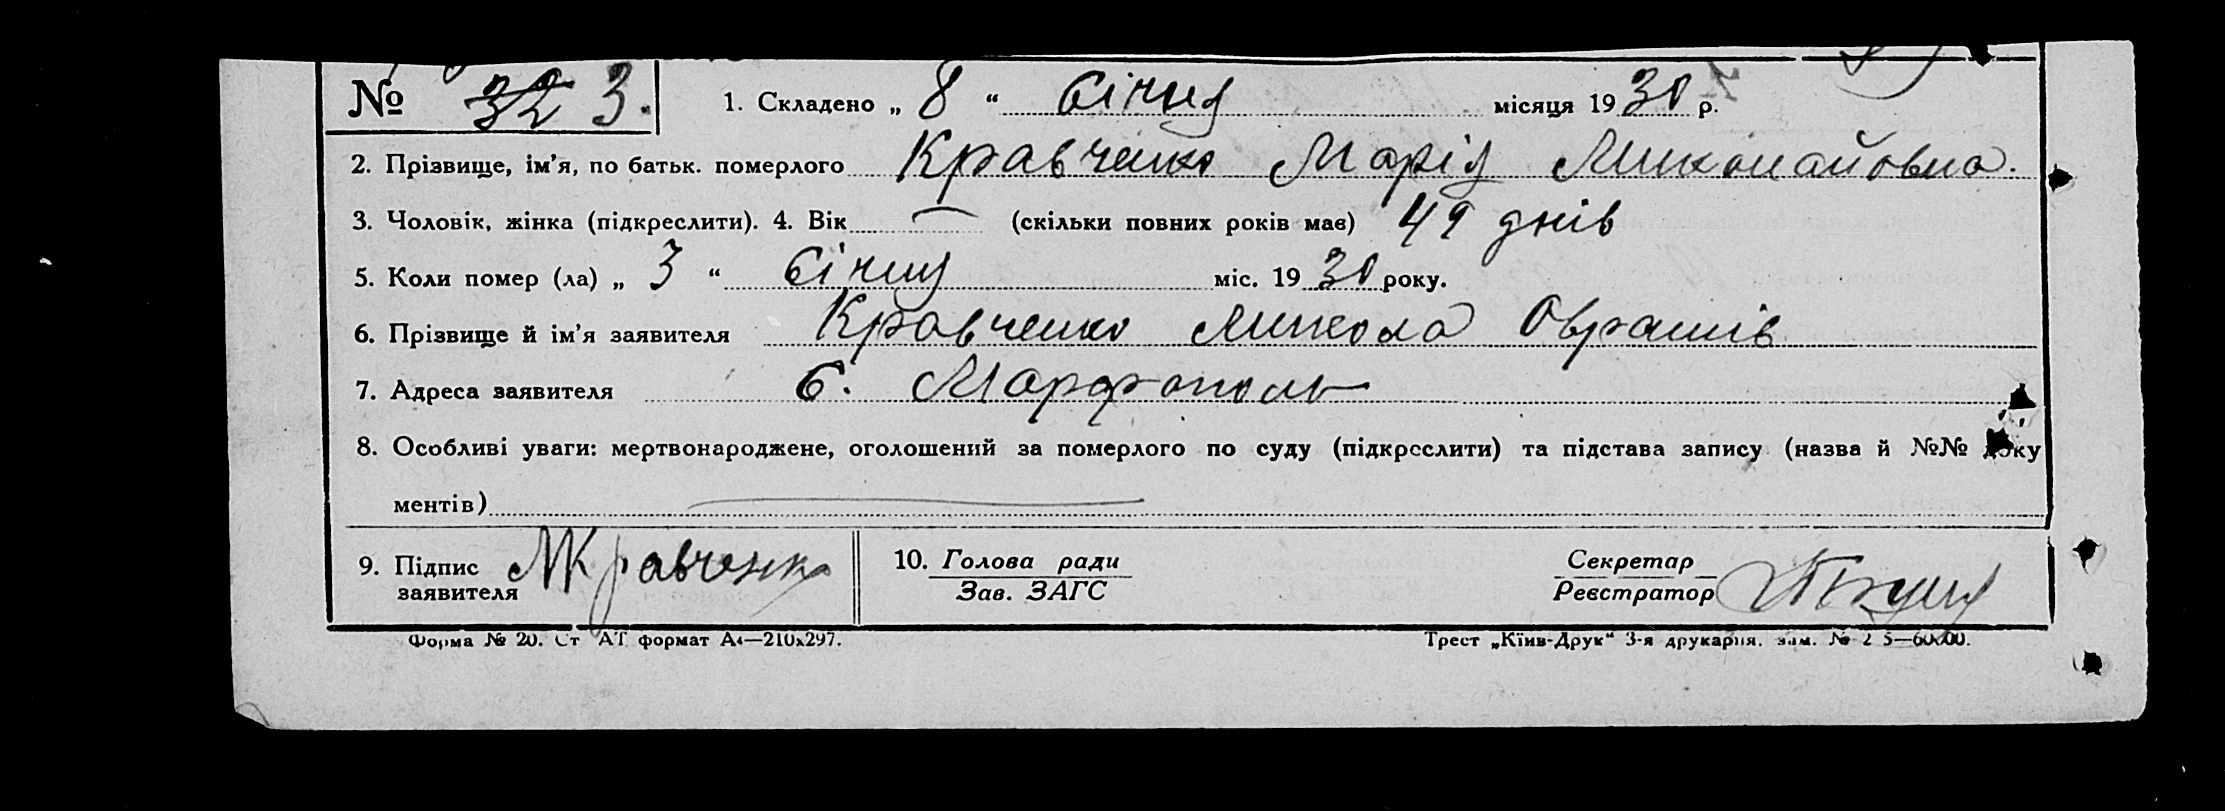 № 32 3.
1. Складено „ 8 “ Січня місяця 1930 р.
2. Прізвище, ім’я, по батьк. померлого Кравченко Марія Миколайовна.
3. Чоловік, жінка (підкреслити). 4. Вік — (скільки повних років має) 49 днів
5. Коли помер (ла) „ 3 “ Січня міс. 1930 року.
6. Прізвище й ім’я заявителя Кравченко Микола
7. Адреса заявителя С. Марфополь
8. Особливі уваги: мертвонароджене, оголошений за померлого по суду (підкреслити) та підстава запису (назва й №№ доку
ментів)
9. Підпис заявителя МКравченко
10. Голова ради
Зав. ЗАГС
Секретар
Реєстратор
Форма № 20. Ст АТ формат А4—210х297.
Трест „Київ-Друк“ 3-я друкарня. зам. №